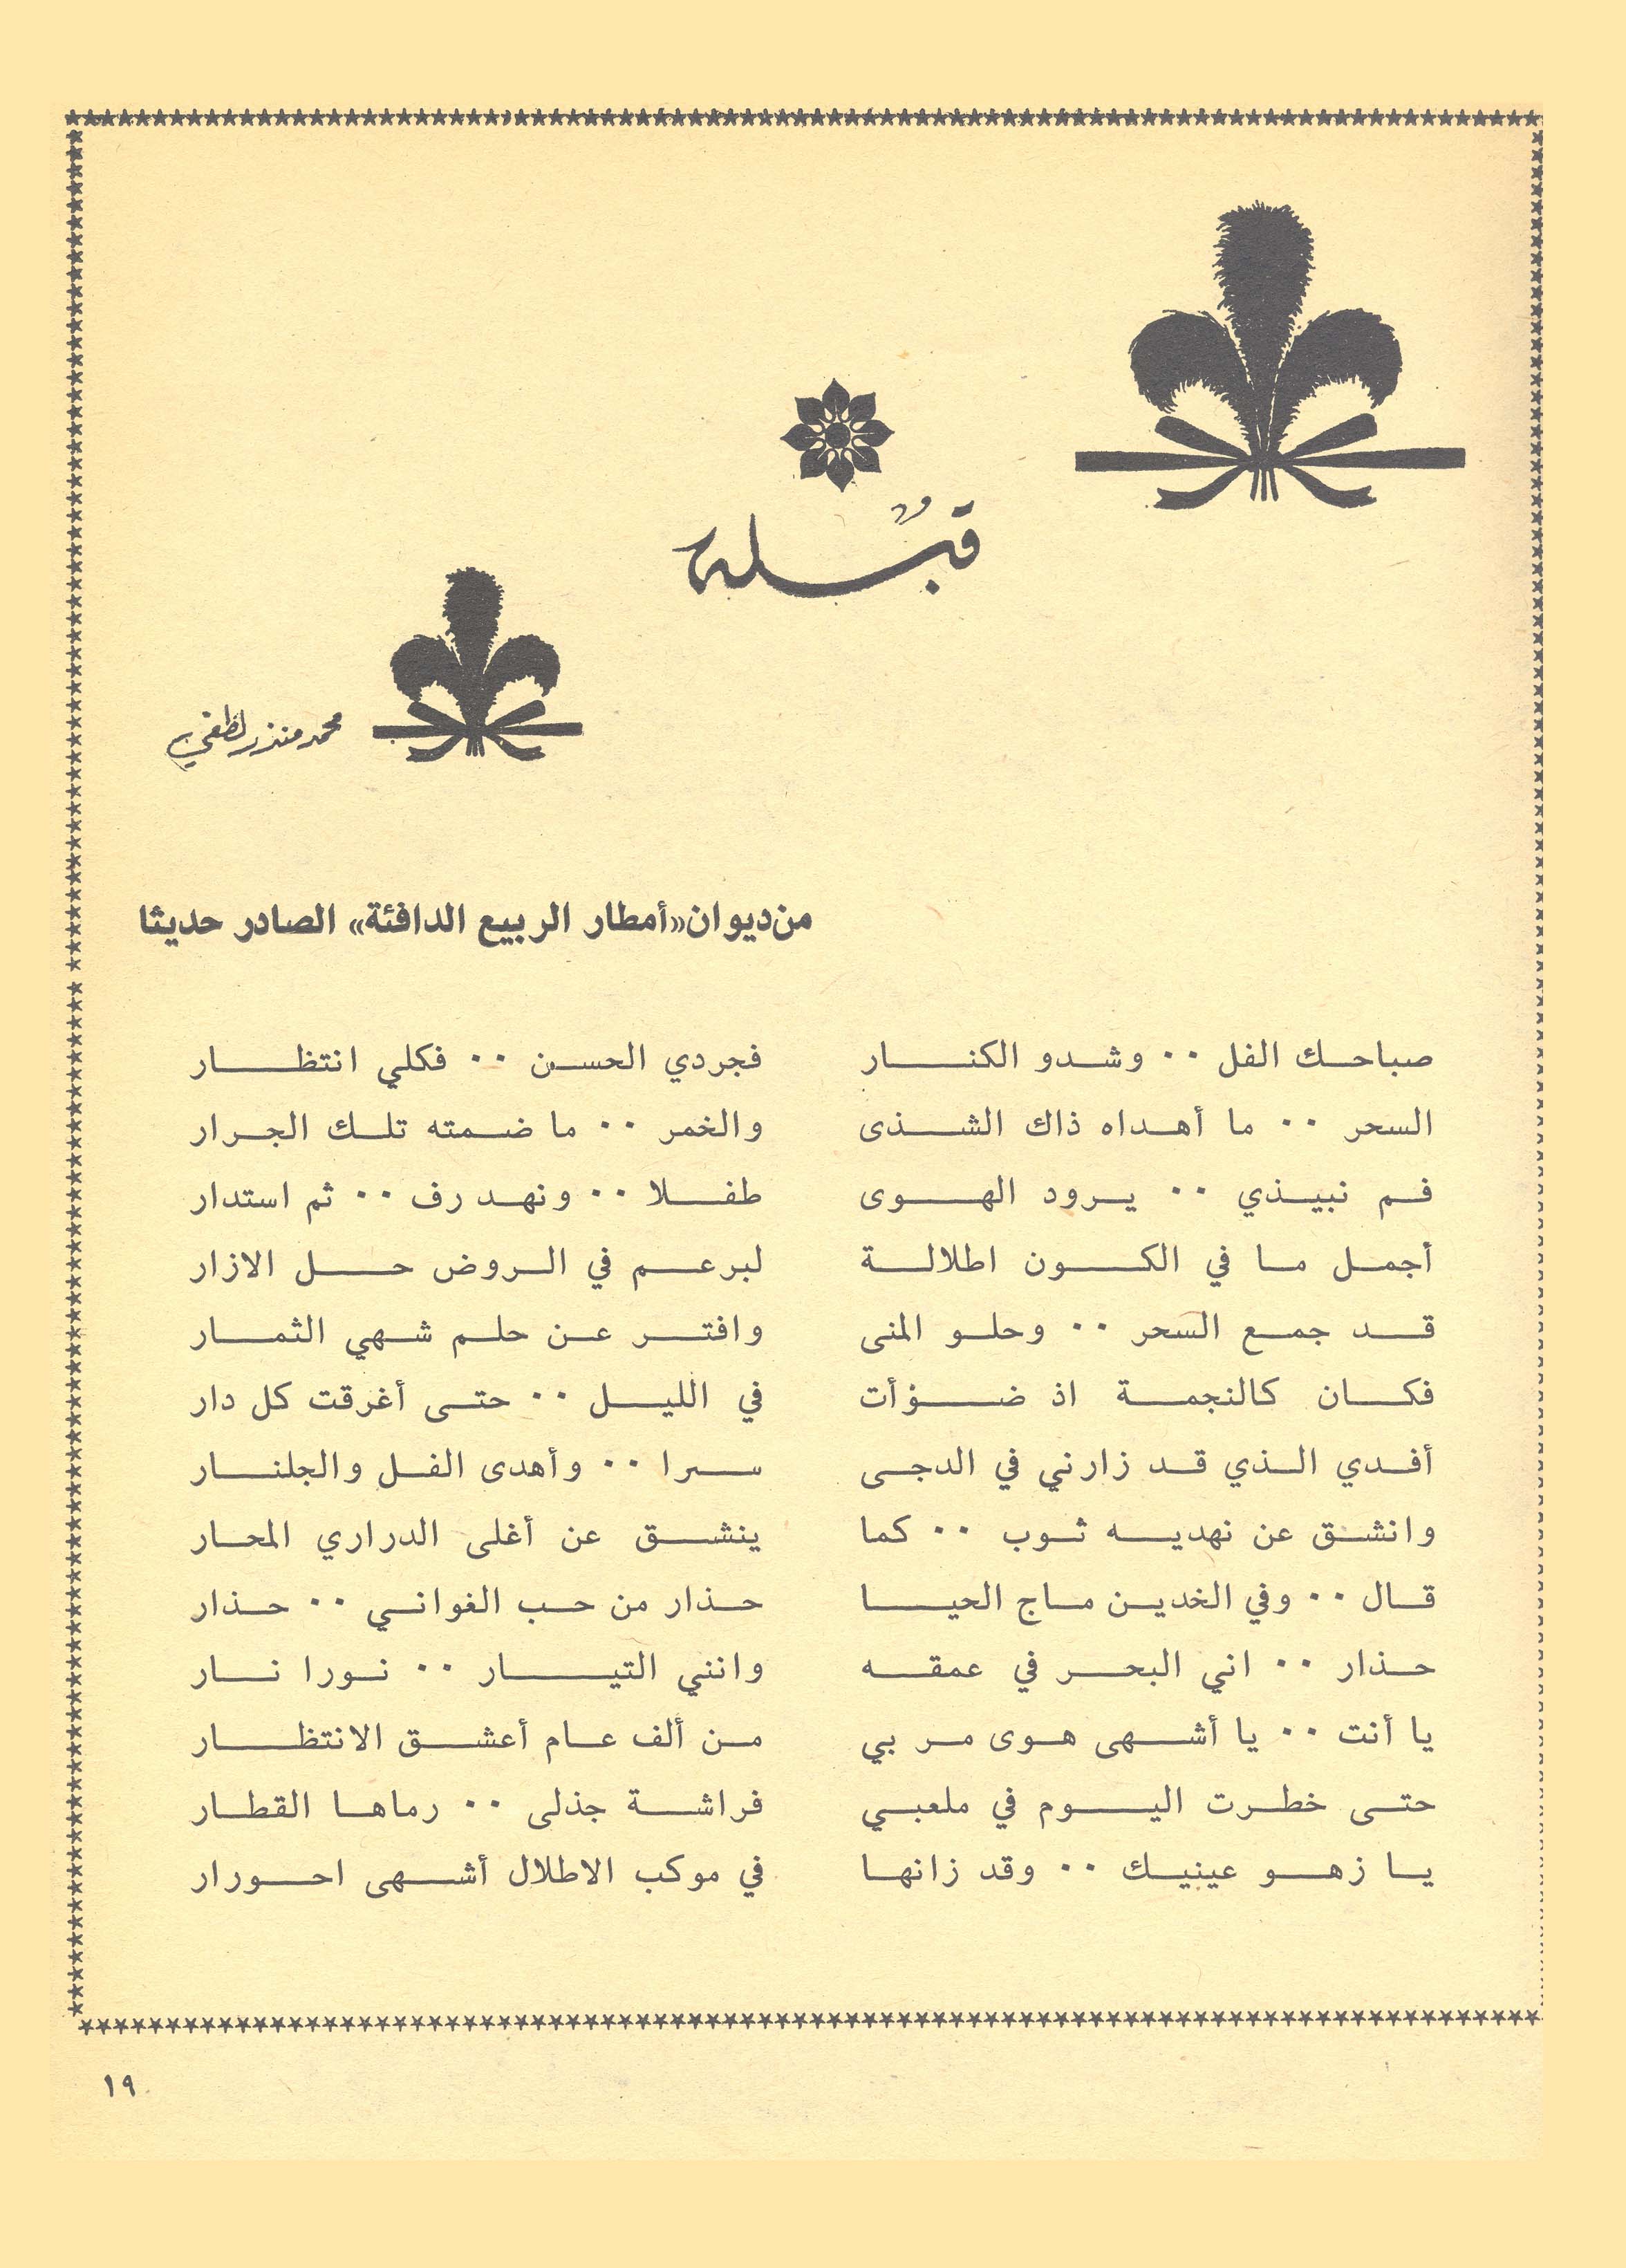 قبلة
محمد منذر لطفي
من ديوان «أمطار الربيع الدافئة» الصادر حديثا
صباحك الفل ٠٠ وشدو الكنار فجردي الحسن ٠٠ فكلي انتظار
السحر ٠٠ ما أهداه ذاك الشذى والخمر ٠٠ ما ضمته تلك الجرار
فم نبيذي ٠٠ يرود الهوى طفلا ٠٠ ونهد رف ٠٠ ثم استدار
أجمل ما في الكون اطلالة لبرعم في الروض حل الازار
قد جمع السحر ٠٠ وحلو المنى وافتر عن حلم شهي الثمار
فكان كالنجمة اذ ضوأت في الليل ٠٠ حتى أغرقت كل دار
أفدي الذي قد زارني في الدجى سرا ٠٠ وأهدى الفل والجلنار
وانشق عن نهديه ثوب ٠٠ كما ينشق عن أغلى الدراري المحار
قال ٠٠ وفي الخدين ماج الحيا حذار من حب الغواني ٠٠ حذار
حذار ٠٠ اني البحر في عمقه وانني التيار ٠٠ نورا نار
يا أنت ٠٠ يا أشهى هوى مر بي من ألف عام أعشق الانتظار
حتى خطرت اليوم في ملعبي فراشة جذلى ٠٠ رماها القطار
يا زهو عينيك ٠٠ وقد زانها في موكب الاطلال أشهى احورار
١٩